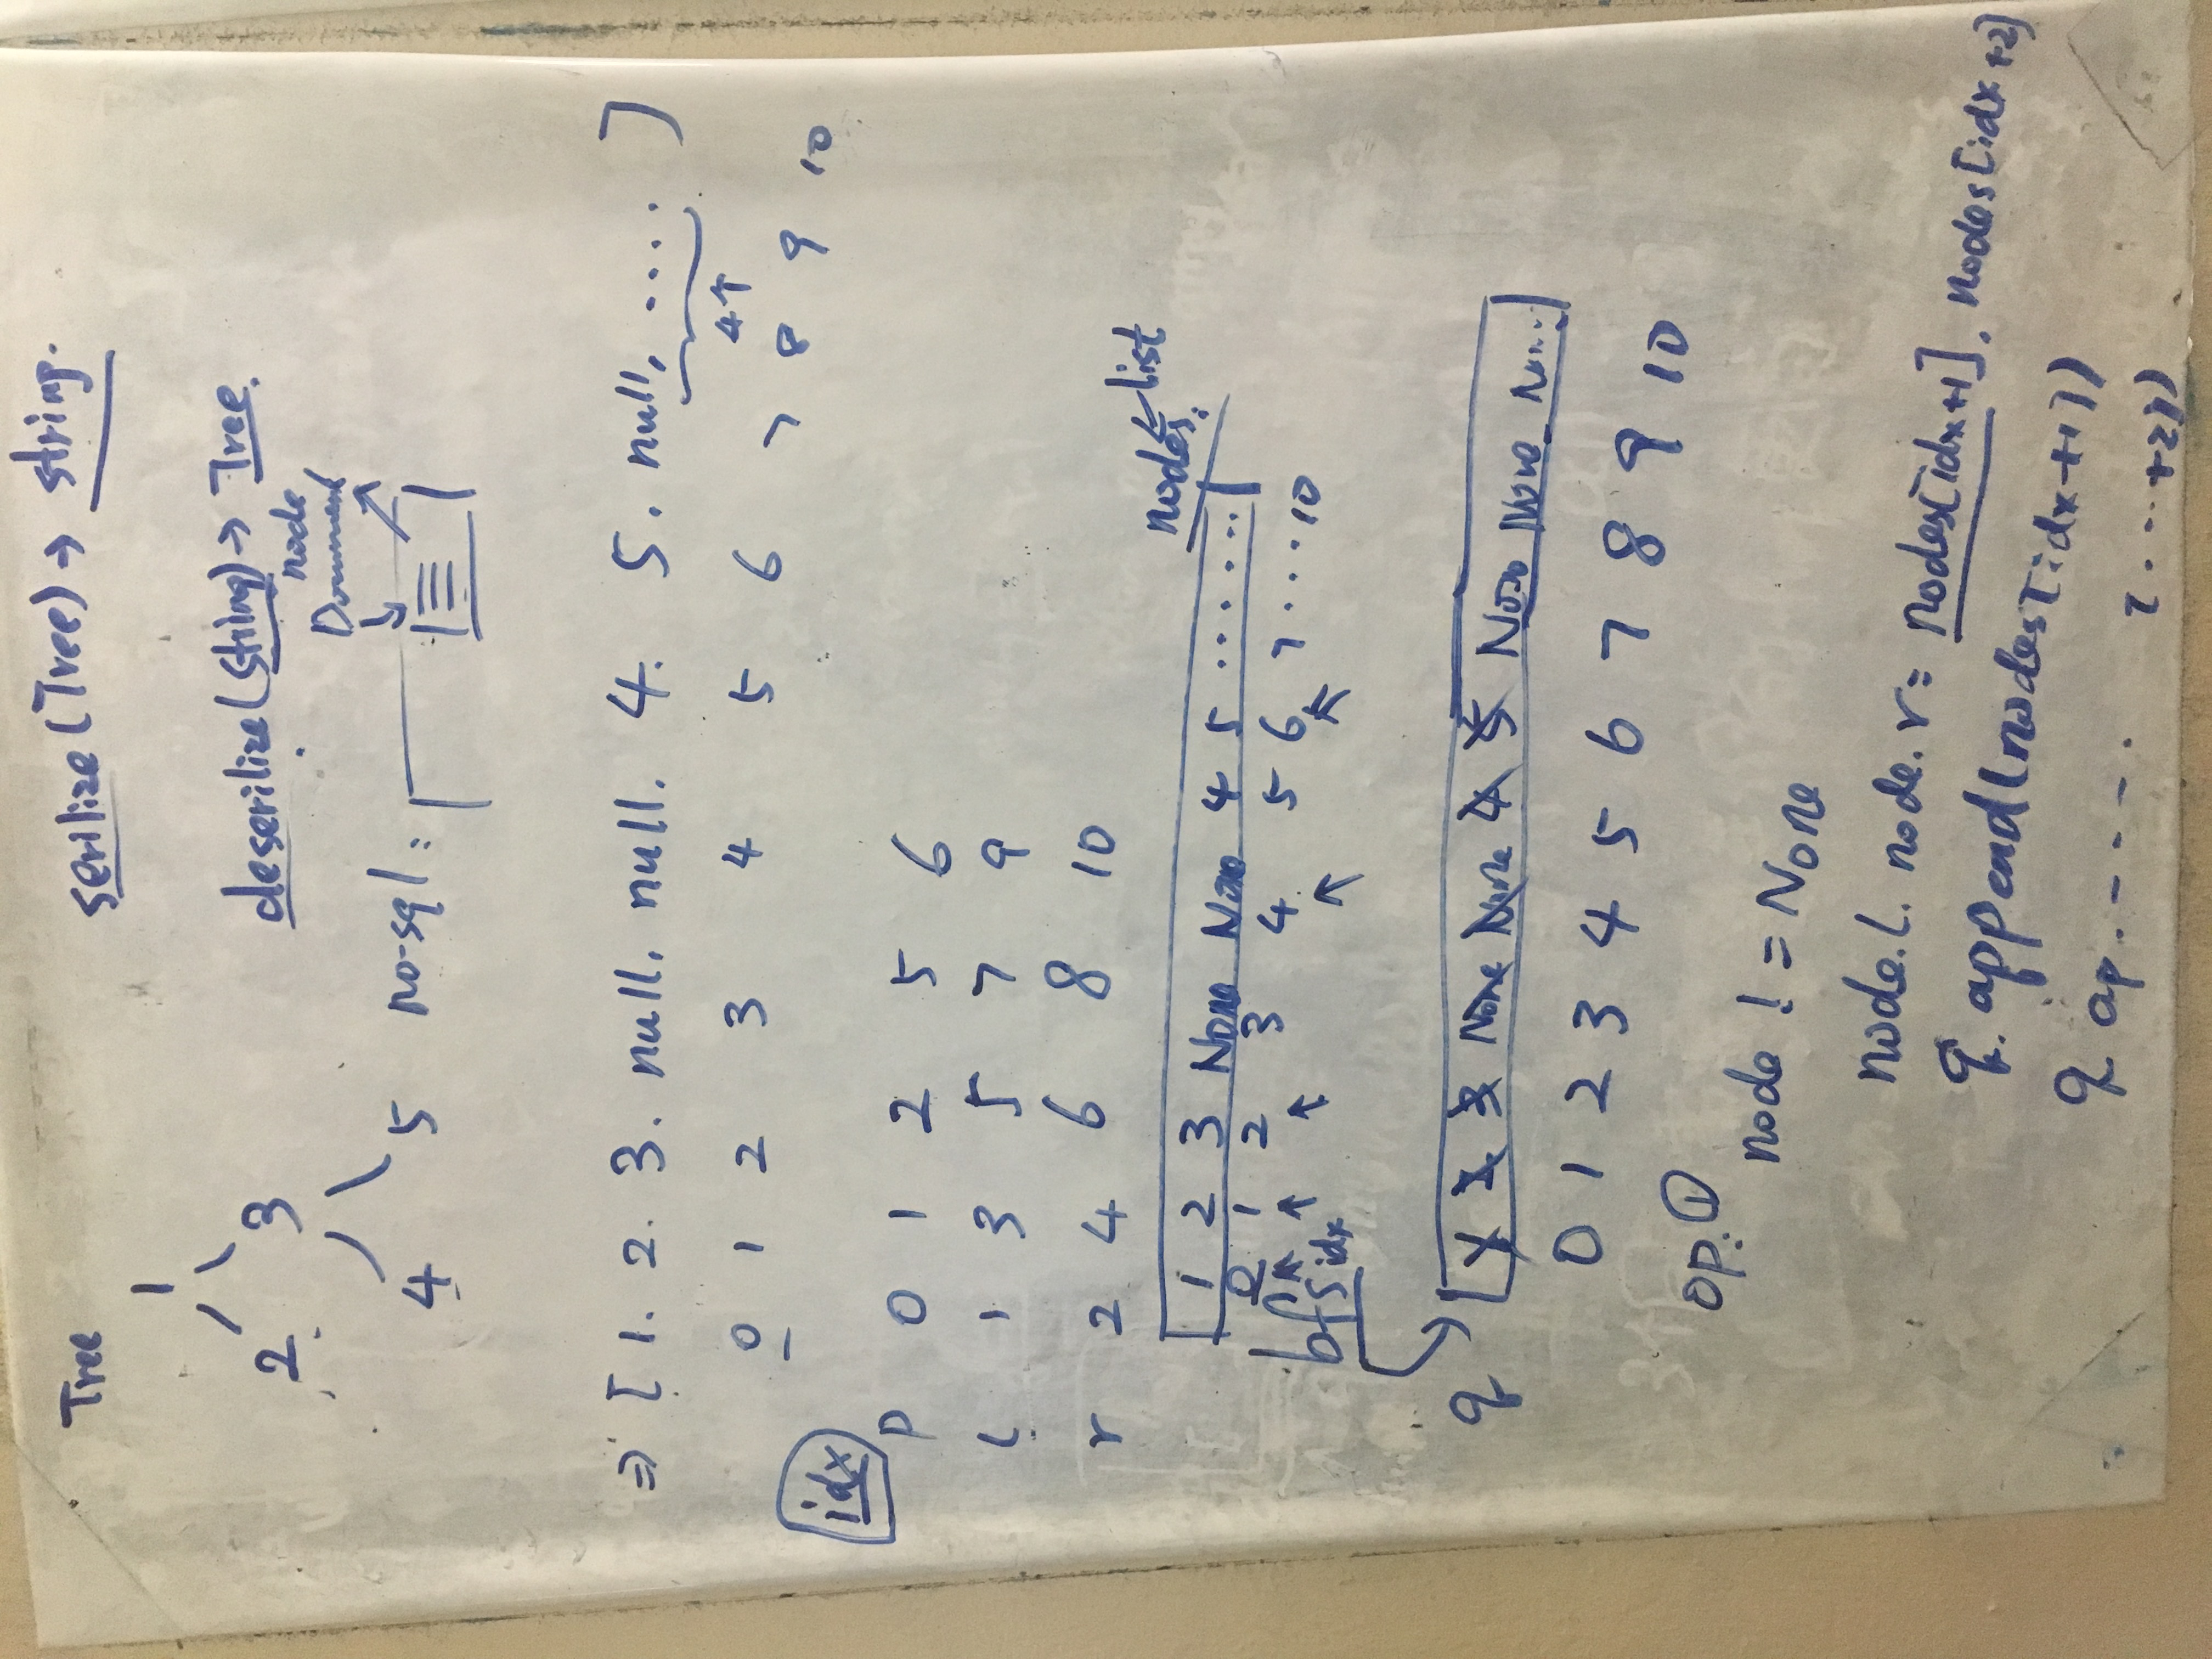 Tree
serilize (Tree) → string.
1
2 3
deserilize (string) → Tree.
node
Document
4 5
no-sql:
⇒ [ 1. 2. 3. null. null. 4. 5. null, .... ]
4个
0 1 2 3 4 5 6 7 8 9 10
idx
p 0 1 2 5 6
l 1 3 5 7 9
r 2 4 6 8 10
nodes. ← list
1 2 3 None None 4 5 ......
0 1 2 3 4 5 6 7 ... 10
bfs idx
q 1 2 3 None None 4 5 None None No...
0 1 2 3 4 5 6 7 8 9 10
op: ①
node != None
node.l. node.r = nodes[idx+1]. nodes[idx+2]
q.append(nodes[idx+1])
q ap...... [...+2])